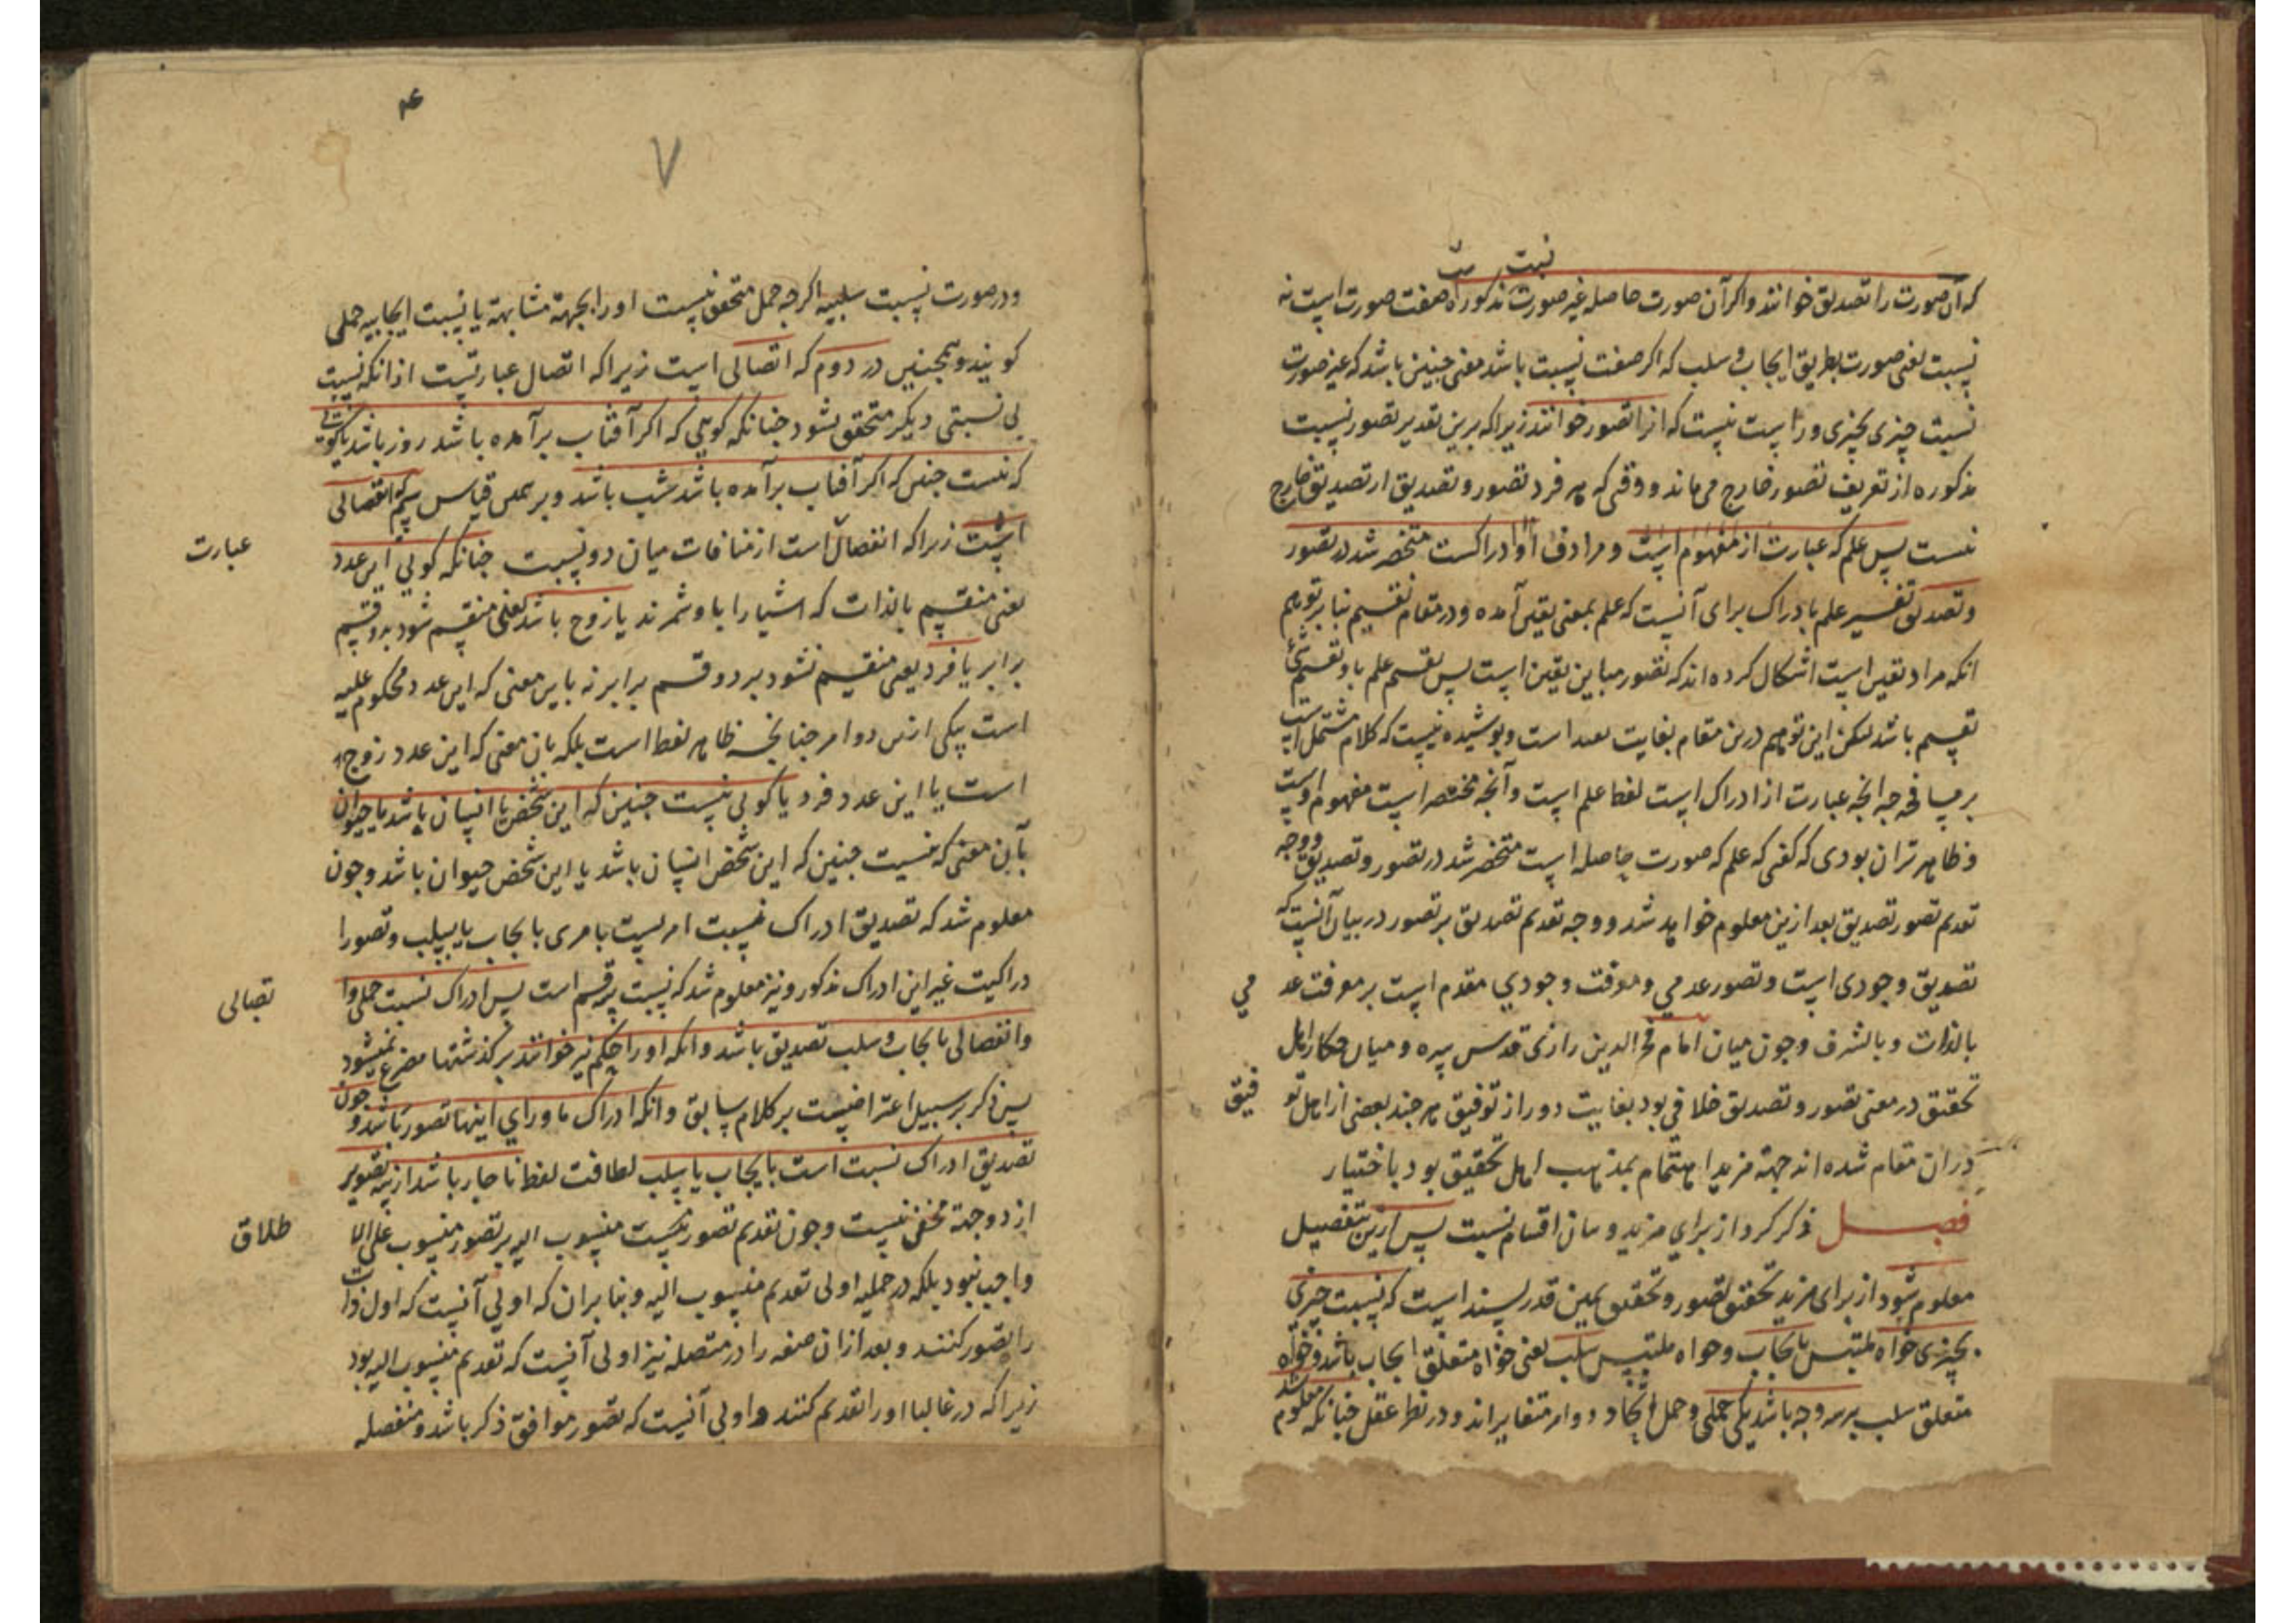 که آن صورت را تصدیق خوانند و اکر آن صورت حاصله غیر صورت مذکوره صفت صورت است نه
نسبت یعنی صورت بطریق ایجاب و سلب که اکر صفت نسبت باشد معنی جنین باشد که غیر صورت
نسبت چیزی بچیزی و راست نیست که انرا تصور خوانند زیرا که برین تقدیر تصور نسبت
مذکوره از تعریف تصور خارج می ماند و وقتی که هر فرد تصور و تصدیق از تصدیق خارج
نیست پس علم که عبارت از مفهوم است و مرادف او ادراکست منحصر شد در تصور
و تصدیق تفسیر علم بادراک برای آنست که علم بمعنی یقین آمده و در مقام تقسیم بنا بر توهم
انکه مراد یقین است اشکال کرده اند که تصور مباین یقین است پس تقسیم علم باو تقسیم شئ
تقسیم باشد لیکن این توهم درین مقام بغایت بعید است و پوشیده نیست که کلام مشتمل است
بر مسامحه جه انجه عبارت از ادراک است لفظ علم است و آنجه منحصر است مفهوم اوست
و ظاهرتر ان بودی که کفتی که علم که صورت حاصله است منحصر شد در تصور و تصدیق و وجه
تقدیم تصور تصدیق بعد ازین معلوم خواهد شد و وجه تقدیم تصدیق بر تصور در بیان آنست که
تصدیق وجودی است و تصور عدمی و معرفت وجودی مقدم است بر معرفت عد می
بالذات و بالشرف و جون میان امام فخر الدین رازی قدس سره و میان حکما راهل
تحقیق در معنی تصور و تصدیق خلافی بود بغایت دور از توفیق هر جند بعضی از اهل تو فیق
دران مقام شده اند جهة مزید اهتمام بمذهب اهل تحقیق بود باختیار
فصل ذکر کرد از برای مزید و بیان اقسام نسبت پس ازین تفصیل
معلوم شود از برای مزید تحقیق تصور و تحقیق همین قدر پسند است که نسبت چیزی
بچیزی خواه ملتبس بایجاب و خواه ملتبس بسلب یعنی خواه متعلق ایجاب باشد و خواه
متعلق سلب بر سه وجه باشد یکی حملی و حمل اتحاد دو امر متغایراند و در نظر عقل جنانکه معلوم شد
۴
۷
و در صورت نسبت سلبیه اکرجه حمل متحقق نیست او را بجهة مشابهة با نسبت ایجابیه حملی
کویند و همجنین در دوم که اتصالی است زیرا که اتصال عبارتست از انکه نسبت
بی نسبتی دیکر متحقق نشود جنانکه کویی که اکر آفتاب برآمده باشد روز باشد یا کویی
که نیست جنین که اکر آفتاب برآمده باشد شب باشد و بر همین قیاس سیم که انفصالی
است زیرا که انفصال است از منافات میان دو نسبت جنانکه کویی این عدد
عبارت
یعنی منقسم بالذات که اشیا را باو شمرند یا زوج باشد یعنی منقسم شود بدو قسم
برابر یا فرد یعنی منقسم نشود بر دو قسم برابر نه باین معنی که این عدد محکوم علیه
است بیکی ازین دو امر جنانجه ظاهر لفظ است بلکه بان معنی که این عدد زوج
است یا این عدد فرد یا کویی نیست جنین که این شخص یا انسان باشد یا حیوان
بآن معنی که نیست جنین که این شخص انسان باشد یا این شخص حیوان باشد و جون
معلوم شد که تصدیق ادراک نسبت امریست بامری بایجاب یا بسلب و تصور ا
دراکیت غیر این ادراک مذکور و نیز معلوم شد که نسبت بر سه قسم است پس ادراک نسبت حملی و ا
تصالی
و انفصالی بایجاب و سلب تصدیق باشد و انکه او را حکم نیز خوانند بر کذشتها متفرع نمیشود
پس ذکر بر سبیل اعتراضست بر کلام سابق و انکه ادراک ماورای اینها تصور باشد و جون
تصدیق ادراک نسبت است بایجاب یا بسلب لطافت لفظ ناجار باشد از سه تصویر
از دو جهة مخفی نیست و جون تقدیم تصور نسبت منسوب الیه بر تصور منسوب علی الا
طلاق
واجب نبود بلکه در حملیه اولی تقدیم منسوب الیه و بنابران که اولی آنست که اول ذات
را تصور کنند و بعد ازان صفه را در متصله نیز اولی آنست که تقدیم منسوب الیه بود
زیرا که در غالبا او را تقدیم کنند و اولی آنست که تصور موافق ذکر باشد و منفصله